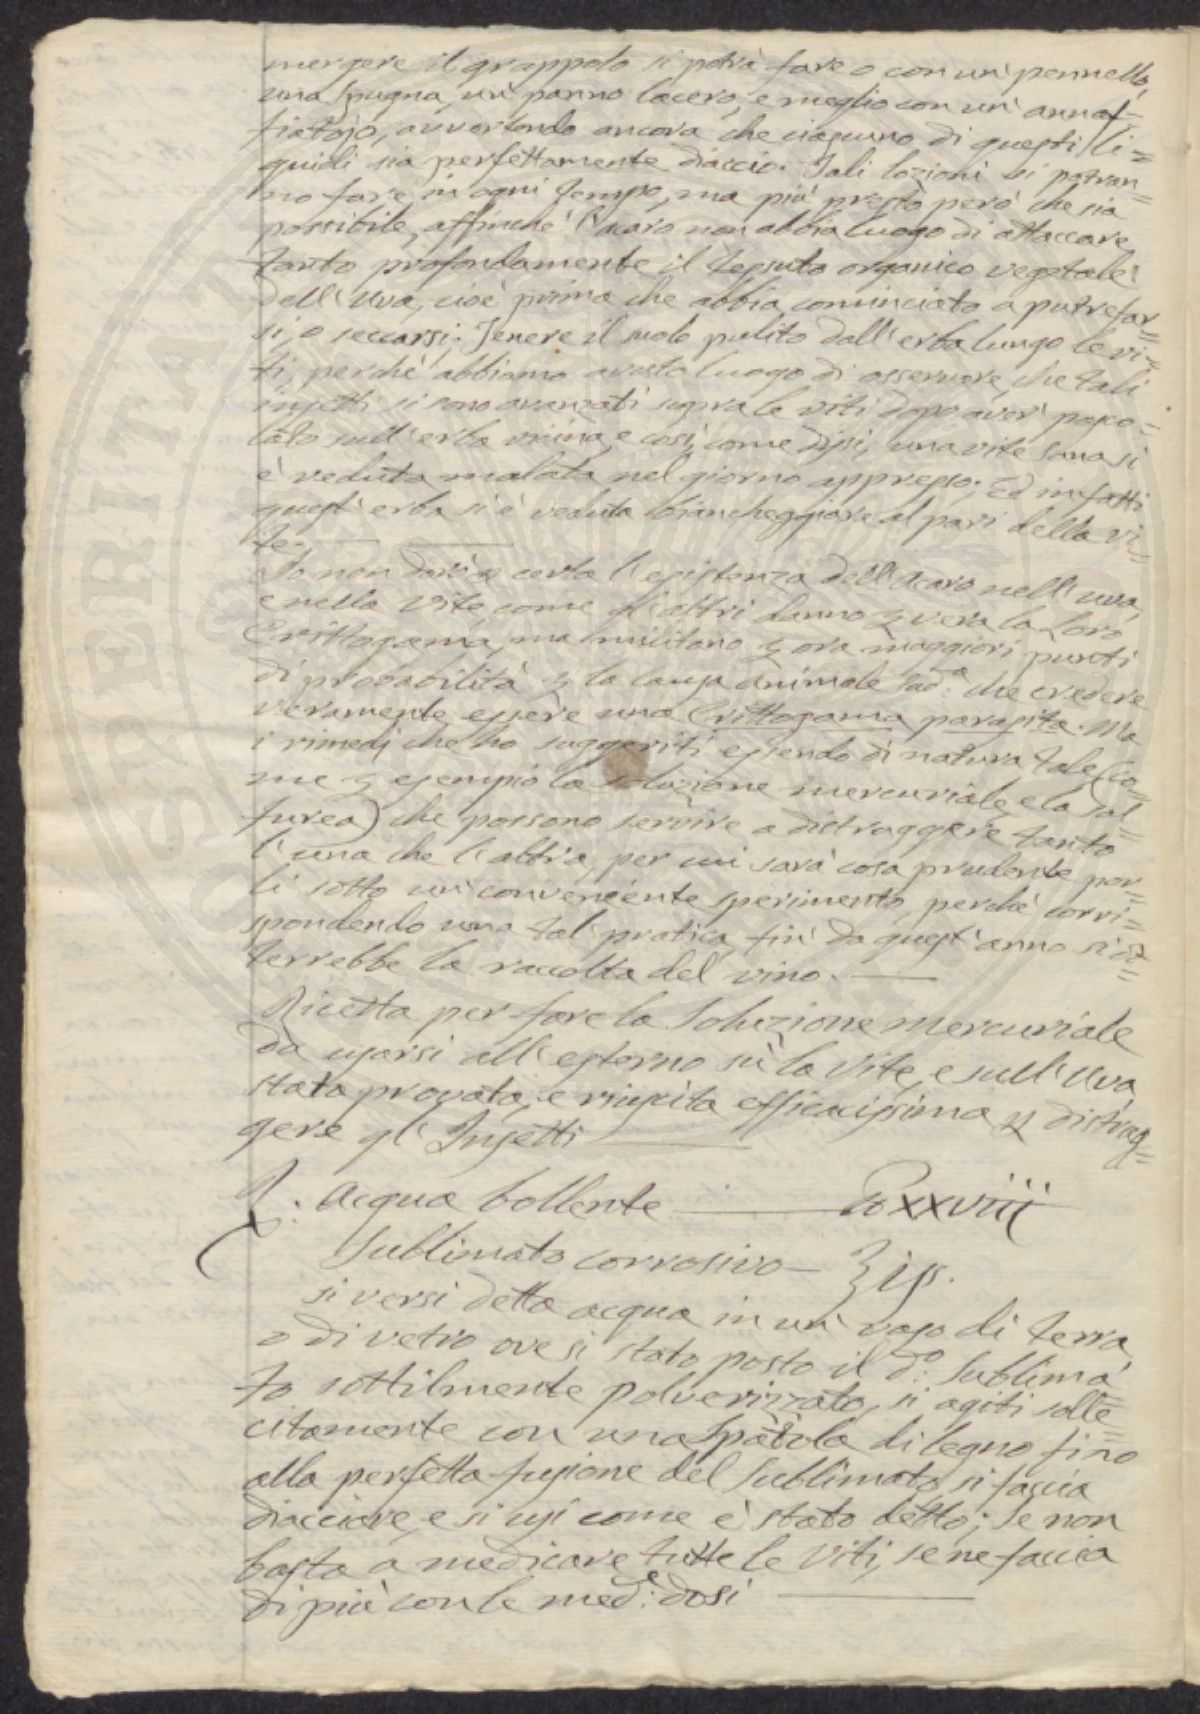 mergere il grappolo si potrà fare o con un' pennello,
una spugna, un' panno lacero, e meglio con un' annaf=
fiatojo, avvertendo ancora che ciascuno di questi li=
quidi sia perfettamente diaccio. Tali lozioni si potran=
no fare in ogni tempo, ma più presto però che sia
possibile, affinchè l'acaro non abbia luogo di attaccare
tanto profondamente il tessuto organico vegetale
dell'Uva, cioè prima che abbia cominciato a putrefar=
si, o seccarsi; Tenere il suolo pulito dall'erba lungo le vi=
ti, perchè abbiamo avuto luogo di osservare, che tali
insetti si sono avanzati sopra le viti dopo aver' pasco=
lato sull'erba vicina, e così, come dissi, una vite sana si
è veduta malata nel giorno appresso; Ed infatti
quest'erba si è veduta biancheggiare al pari della vi=
te.
Io non darò p certa l'esistenza dell'Acaro nell'uva,
e nella Vite, come gli altri danno p vera la loro
Crittogama, ma militano p ora maggiori punti
di probabilità p la causa animale sud.ª che credere
veramente essere una Crittogama parasita. Ma
i rimedj che ho suggeriti essendo di natura tale (co=
me p esempio la soluzione mercuriale, e la sul=
furea) che possono servire a distruggere tanto
l'una che l'altra, per cui sarà cosa prudente por=
li sotto un' conveniente sperimento, perchè corri=
spondendo una tal' pratica, fin' da quest'anno si ot=
terrebbe la raccolta del vino.
Ricetta per fare la Soluzione mercuriale
da usarsi all'esterno sù la Vite, e sull'Uva,
stata provata, e riuscita efficacissima p distrug=
gere gl'Insetti
R. Acqua bollente ℔ xxviij
Sublimato corrosivo ʒ ijs.
si versi detta acqua in un' vaso di terra,
o di vetro ove si stato posto il d.º Sublima=
to sottilmente polverizzato, si agiti solle=
citamente con una Spatola di legno fino
alla perfetta fusione del Sublimato, si faccia
diacciare, e si usi come è stato detto; se non
basta a medicare tutte le Viti, se ne faccia
di più con le med.e dosi